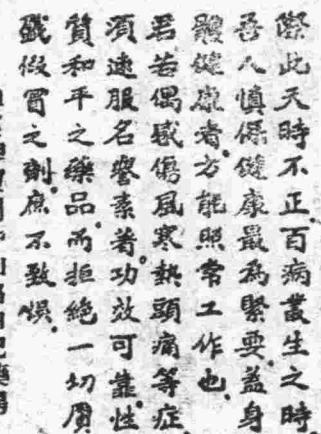 際此天時不正。百病叢生之時
吾人慎保健康最為緊要。蓋身
體健康者。方能照常工作也。
君若偶感傷風寒熱頭痛等症。
須速服名譽素著。功效可靠。性
質和平之藥品。而拒絕一切贗
假冒之劑。庶不致悞。